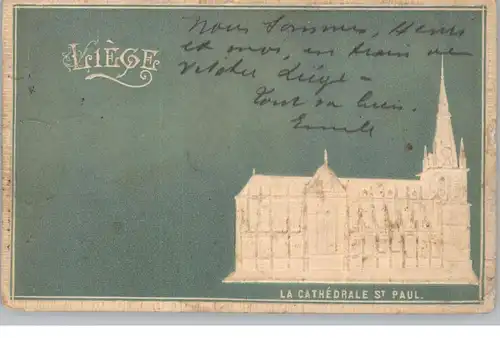 LIÈGE
Nous sommes, Henri
et moi, en train de
visiter Liége –
Tout va bien.
Emile
LA CATHÉDRALE ST PAUL.